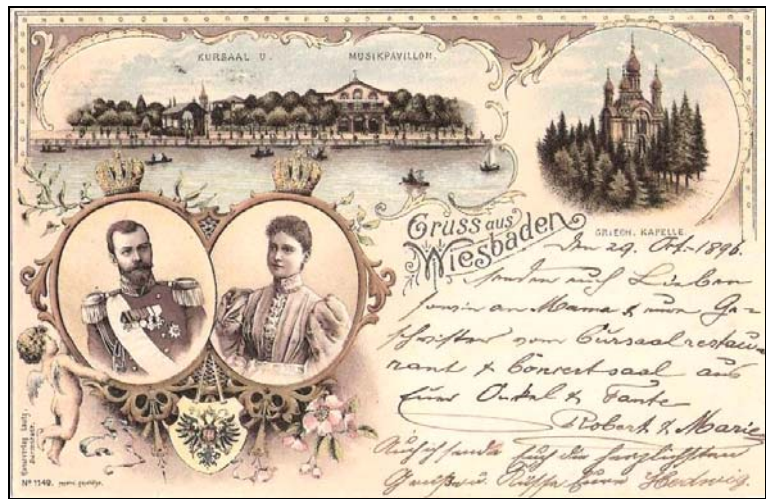 KURSAAL U. MUSIKPAVILLON.
GRIECH. KAPELLE.
Gruss aus
Wiesbaden
den 29. Oct. 1896.
senden euch Lieben
sowie an Mama & eure Ge-
schwister vom Cursaalrestau-
rant & Concertsaal aus
Euer Onkel & Tante
Robert & Marie
Auch ich sende Euch die herzlichsten
Grüße u. Küsse Eure Hedwig.
Kunstverlag Lautz,
Darmstadt.
No 1149. gesetzl. geschützt.